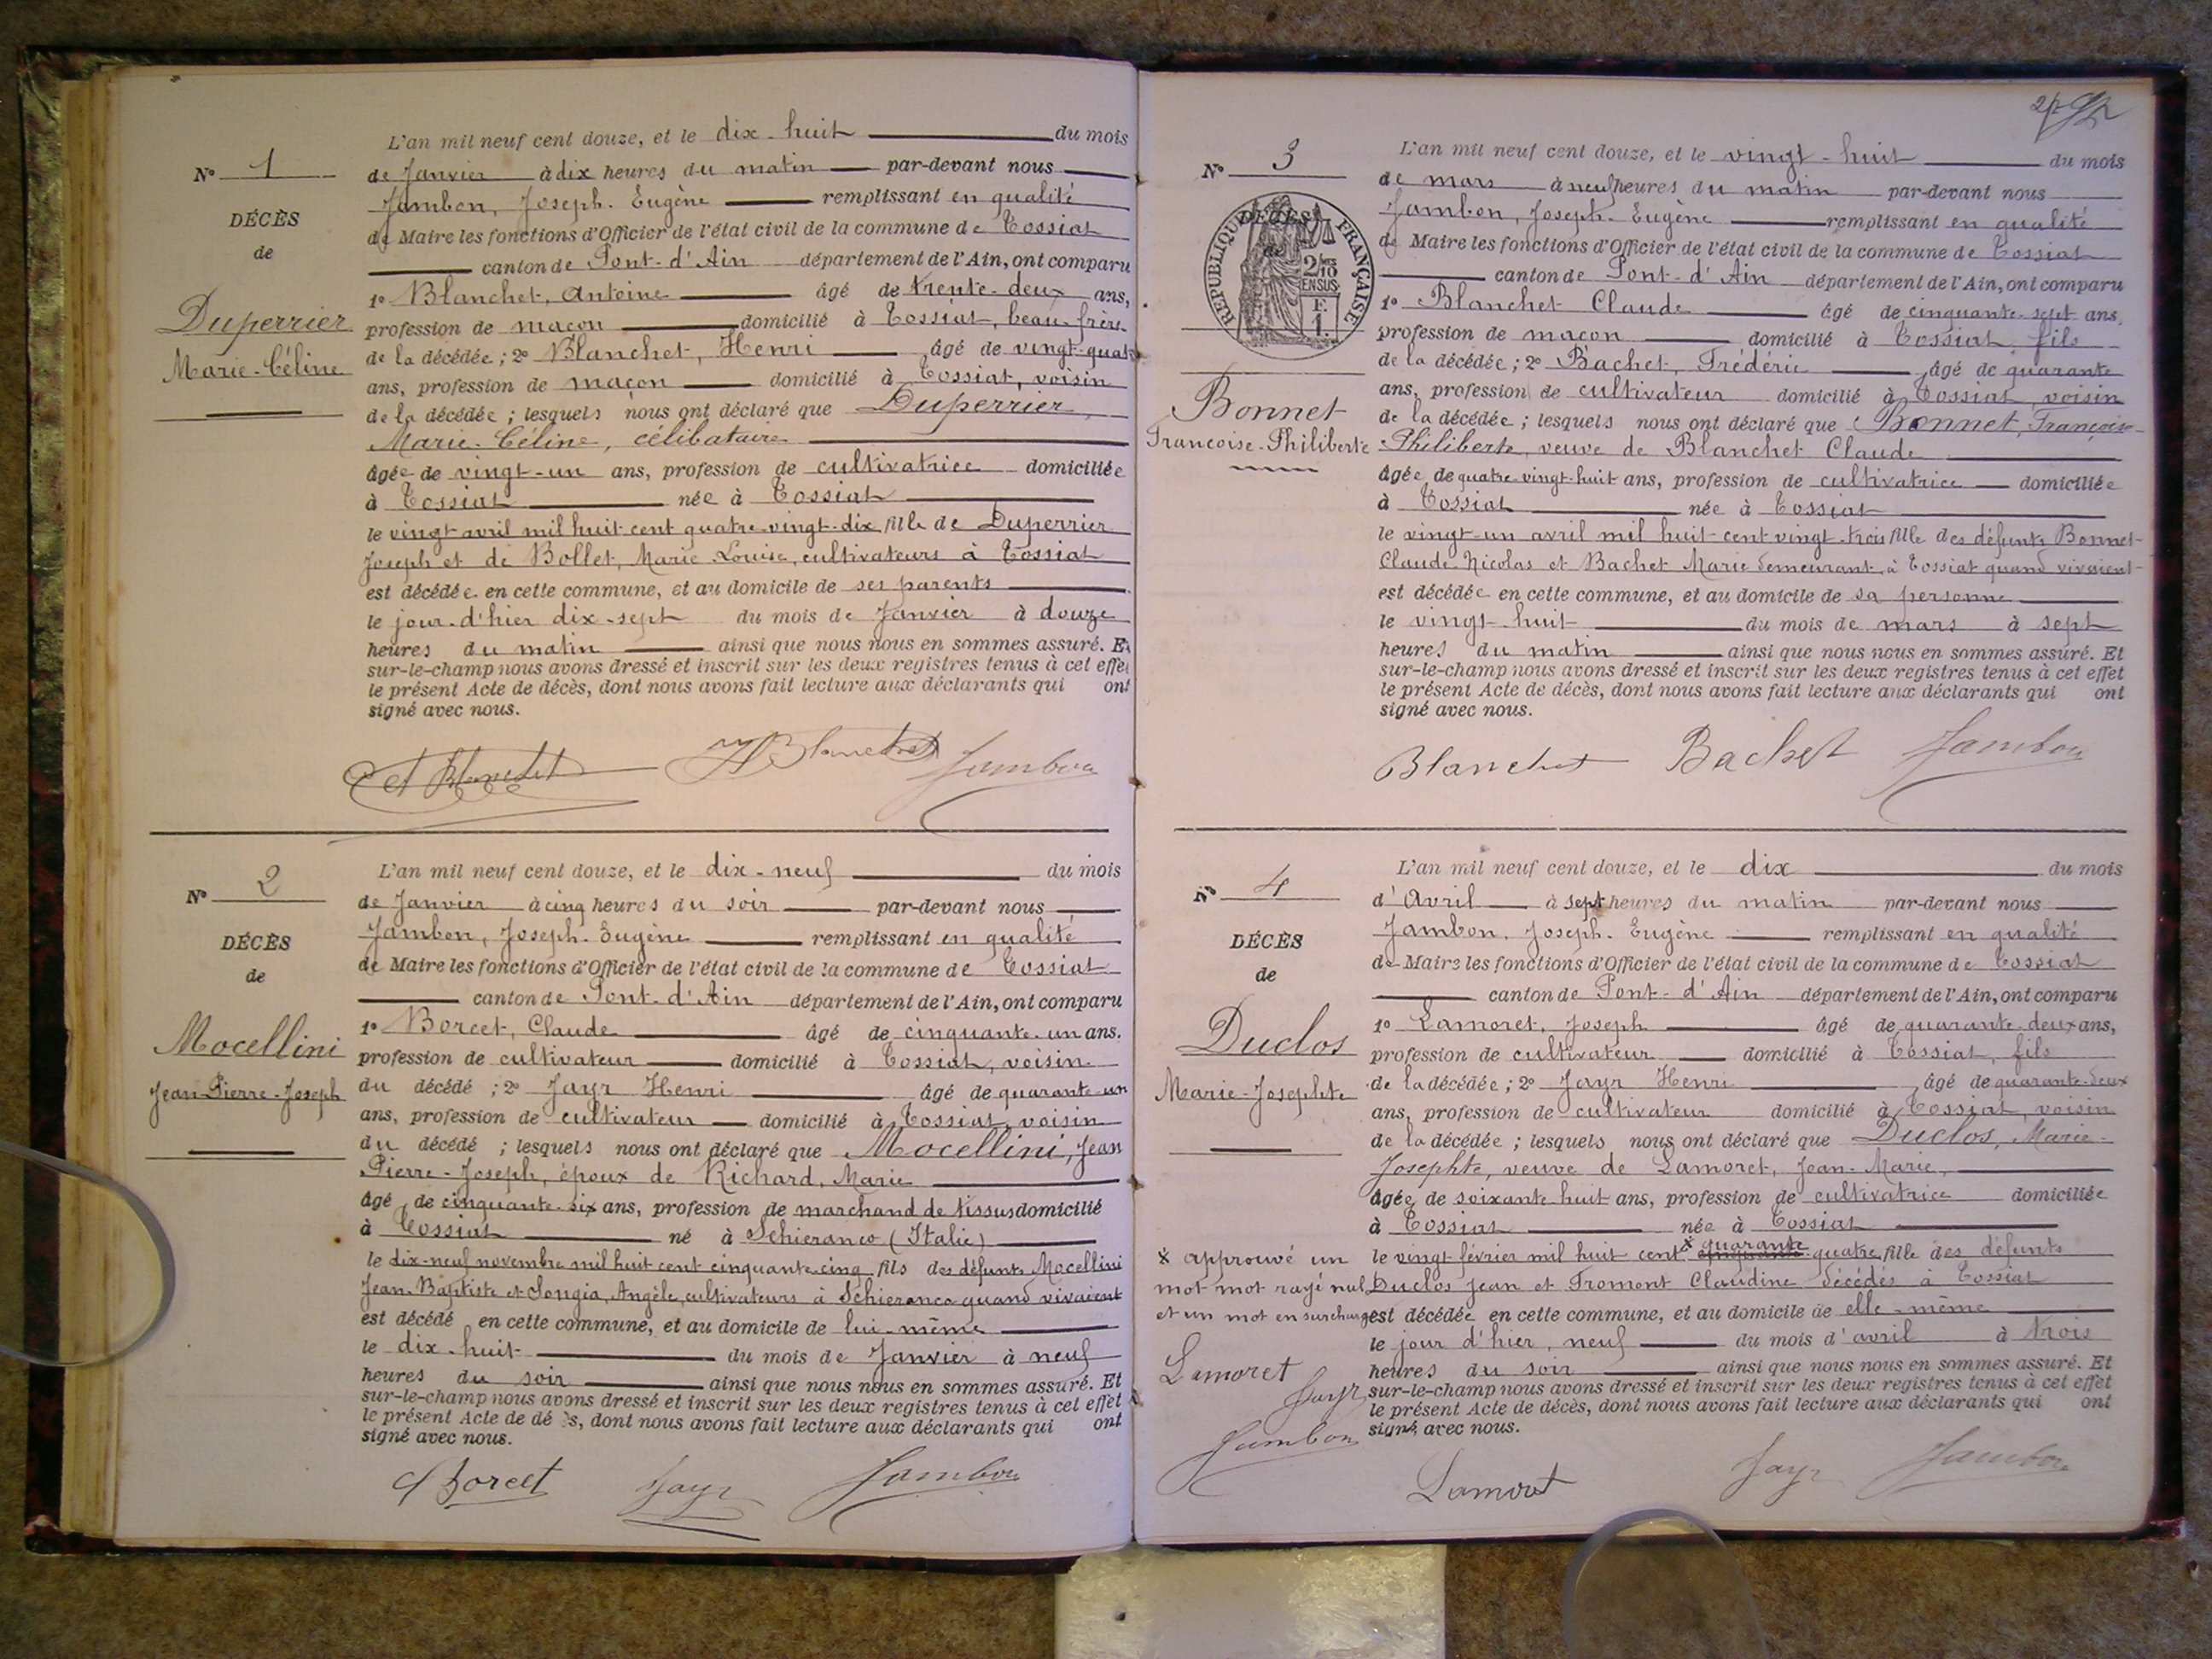 N° 1
DÉCÈS
de
Duperrier
Marie-Céline
L'an mil neuf cent douze, et le dix-huit du mois
de Janvier à dix heures du matin par-devant nous
Jambon, Joseph-Eugène remplissant en qualité
de Maire les fonctions d'Officier de l'état civil de la commune de Tossiat
canton de Pont-d'Ain département de l'Ain, ont comparu
1° Blanchet, Antoine âgé de trente-deux ans,
profession de maçon domicilié à Tossiat, beau-frère
de la décédée ; 2° Blanchet, Henri âgé de vingt-quatre
ans, profession de maçon domicilié à Tossiat, voisin
de la décédée ; lesquels nous ont déclaré que Duperrier,
Marie-Céline, célibataire
âgée de vingt-un ans, profession de cultivatrice domiciliée
à Tossiat née à Tossiat
le vingt avril mil huit cent quatre-vingt-dix fille de Duperrier
Joseph et de Bollet, Marie-Louise, cultivateurs à Tossiat
est décédée en cette commune, et au domicile de ses parents
le jour-d'hier dix-sept du mois de Janvier à douze
heures du matin ainsi que nous nous en sommes assuré. Et
sur-le-champ nous avons dressé et inscrit sur les deux registres tenus à cet effet
le présent Acte de décès, dont nous avons fait lecture aux déclarants qui ont
signé avec nous.
A Blanchet H Blanchet Jambon
N° 2
DÉCÈS
de
Mocellini
Jean-Pierre-Joseph
L'an mil neuf cent douze, et le dix-neuf du mois
de Janvier à cinq heures du soir par-devant nous
Jambon, Joseph-Eugène remplissant en qualité
de Maire les fonctions d'Officier de l'état civil de la commune de Tossiat
canton de Pont-d'Ain département de l'Ain, ont comparu
1° Borcet, Claude âgé de cinquante-un ans.
profession de cultivateur domicilié à Tossiat, voisin
du décédé ; 2° Jayr Henri âgé de quarante-un
ans, profession de cultivateur domicilié à Tossiat, voisin
du décédé ; lesquels nous ont déclaré que Mocellini, Jean
Pierre-Joseph, époux de Richard, Marie
âgé de cinquante-six ans, profession de marchand de tissus domicilié
à Tossiat né à Schieranco (Italie)
le dix-neuf novembre mil huit cent cinquante-cinq fils des défunts Mocellini
Jean-Baptiste et Songia, Angèle, cultivateurs à Schieranco quand vivaient
est décédé en cette commune, et au domicile de lui-même
le dix-huit du mois de Janvier à neuf
heures du soir ainsi que nous nous en sommes assuré. Et
sur-le-champ nous avons dressé et inscrit sur les deux registres tenus à cet effet
le présent Acte de dé s, dont nous avons fait lecture aux déclarants qui ont
signé avec nous.
C Borcet Jayr Jambon
N° 3
DÉCÈS
de
RÉPUBLIQUE FRANÇAISE
2/10
EN SUS
F.
1.
Bonnet
Francoise-Philiberte
L'an mil neuf cent douze, et le vingt-huit du mois
de mars à neuf heures du matin par-devant nous
Jambon, Joseph-Eugène remplissant en qualité
de Maire les fonctions d'Officier de l'état civil de la commune de Tossiat
canton de Pont-d'Ain département de l'Ain, ont comparu
1° Blanchet Claude âgé de cinquante-sept ans,
profession de maçon domicilié à Tossiat, fils
de la décédée ; 2° Bachet, Frédéric âgé de quarante
ans, profession de cultivateur domicilié à Tossiat, voisin
de la décédée ; lesquels nous ont déclaré que Bonnet, Françoise-
Philiberte, veuve de Blanchet Claude
âgée de quatre-vingt-huit ans, profession de cultivatrice domiciliée
à Tossiat née à Tossiat
le vingt-un avril mil huit-cent vingt-trois fille des défunts Bonnet
Claude-Nicolas et Bachet Marie demeurant à Tossiat quand vivaient
est décédée en cette commune, et au domicile de sa personne
le vingt-huit du mois de mars à sept
heures du matin ainsi que nous nous en sommes assuré. Et
sur-le-champ nous avons dressé et inscrit sur les deux registres tenus à cet effet
le présent Acte de décès, dont nous avons fait lecture aux déclarants qui ont
signé avec nous.
Blanchet Bachet Jambon
N° 4
DÉCÈS
de
Duclos
Marie-Josephte
L'an mil neuf cent douze, et le dix du mois
d'Avril à sept heures du matin par-devant nous
Jambon, Joseph-Eugène remplissant en qualité
de Maire les fonctions d'Officier de l'état civil de la commune de Tossiat
canton de Pont-d'Ain département de l'Ain, ont comparu
1° Lamoret, Joseph âgé de quarante-deux ans,
profession de cultivateur domicilié à Tossiat, fils
de la décédée ; 2° Jayr Henri âgé de quarante-deux
ans, profession de cultivateur domicilié à Tossiat, voisin
de la décédée ; lesquels nous ont déclaré que Duclos, Marie-
Josephte, veuve de Lamoret, Jean-Marie,
âgée de soixante-huit ans, profession de cultivatrice domiciliée
à Tossiat née à Tossiat
x quarante
le vingt février mil huit cent cinquante quatre fille des défunts
Duclos Jean et Fromont Claudine décédés à Tossiat
est décédée en cette commune, et au domicile de elle-même
le jour d'hier, neuf du mois d'avril à trois
heures du soir ainsi que nous nous en sommes assuré. Et
sur-le-champ nous avons dressé et inscrit sur les deux registres tenus à cet effet
le présent Acte de décès, dont nous avons fait lecture aux déclarants qui ont
signé avec nous.
x approuvé un
mot mot rayé nul
et un mot en surcharge
Lamoret
Jayr
Jambon
Lamoret Jayr Jambon